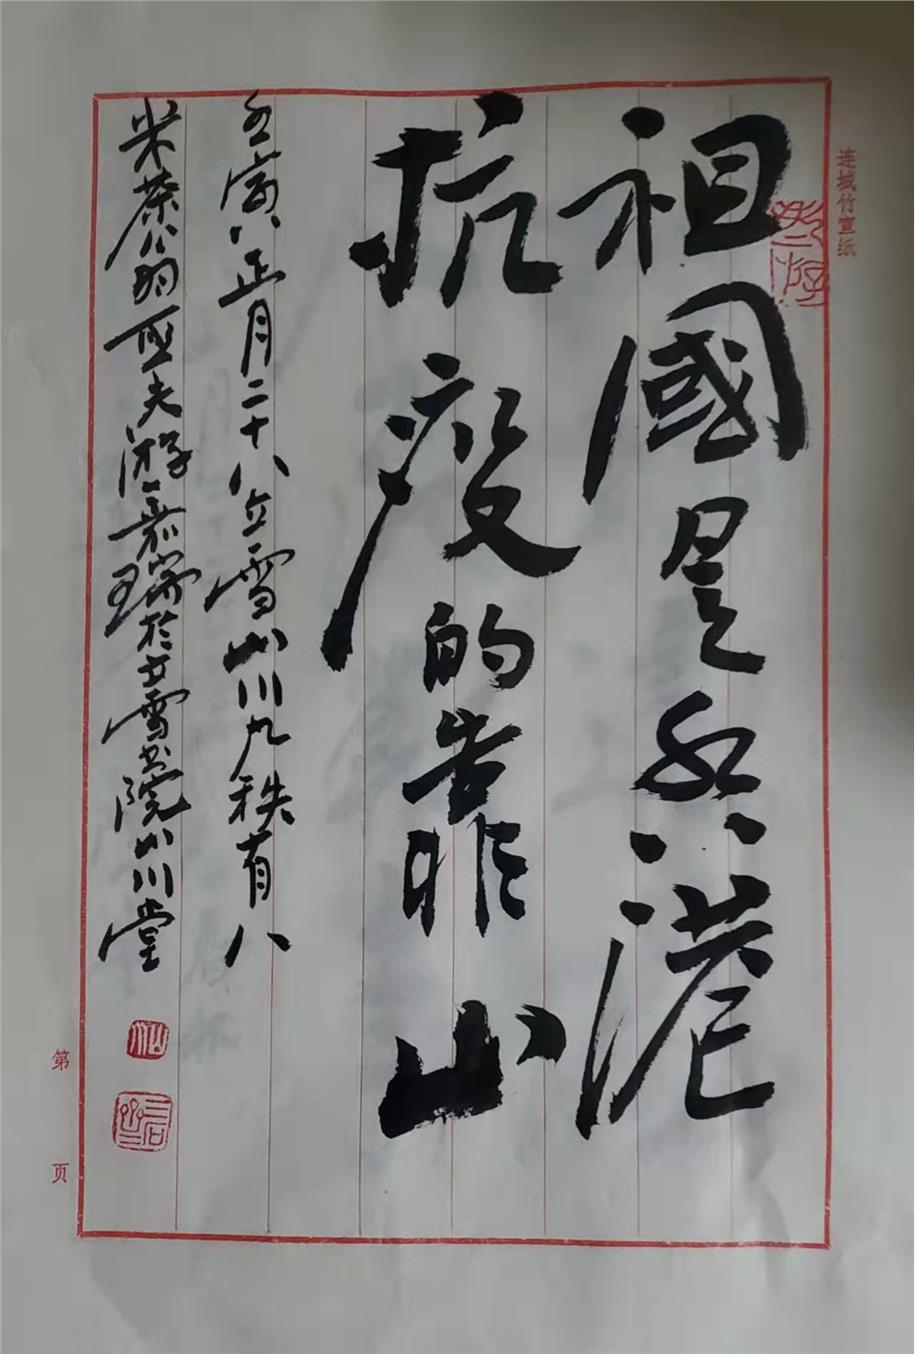 祖國是香港
抗疫的靠山
壬寅正月二十八立雪山川九秩有八
米茶公翁 夫游嘉瑞於立雪書院山川堂
连城竹宣纸
第 页